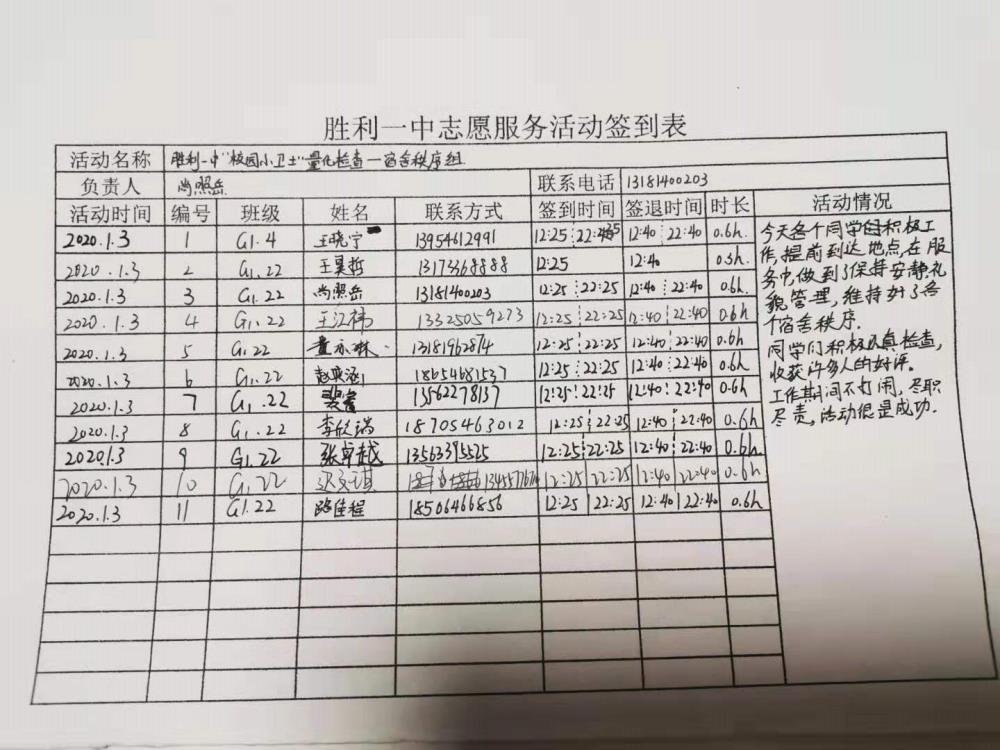 胜利一中志愿服务活动签到表
活动名称 胜利一中"校园小卫士"量化检查—宿舍秩序组
负责人 尚照岳 联系电话 13181400203
活动时间 编号 班级 姓名 联系方式 签到时间 签退时间 时长 活动情况
2020.1.3 1 G1.4 王晓宁 13954612991 12:25 22:25 12:40 22:40 0.6h
2020.1.3 2 G1.22 王昊哲 13173368888 12:25 12:40 0.3h
2020.1.3 3 G1.22 尚照岳 13181400203 12:25 22:25 12:40 22:40 0.6h
2020.1.3 4 G1.22 王江祎 13325059273 12:25 22:25 12:40 22:40 0.6h
2020.1.3 5 G1.22 董亦琳 13181962874 12:25 22:25 12:40 22:40 0.6h
2020.1.3 6 G1.22 18654681537 12:25 22:25 12:40 22:40 0.6h
2020.1.3 7 G1.22 13562278137 12:25 22:25 12:40 22:40 0.6h
2020.1.3 8 G1.22 李欣瑞 18705463012 12:25 22:25 12:40 22:40 0.6h
2020.1.3 9 G1.22 张卓越 13563395525 12:25 22:25 12:40 22:40 0.6h
2020.1.3 10 G1.22 12:25 22:25 12:40 22:40 0.6h
2020.1.3 11 G1.22 路佳程 18506466856 12:25 22:25 12:40 22:40 0.6h
今天各个同学都积极工
作,提前到达地点,在服
务中,做到了保持安静,礼
貌管理,维持好了各
个宿舍秩序.
同学们积极认真检查,
收获许多人的好评。
工作期间不打闹,尽职
尽责,活动很是成功.